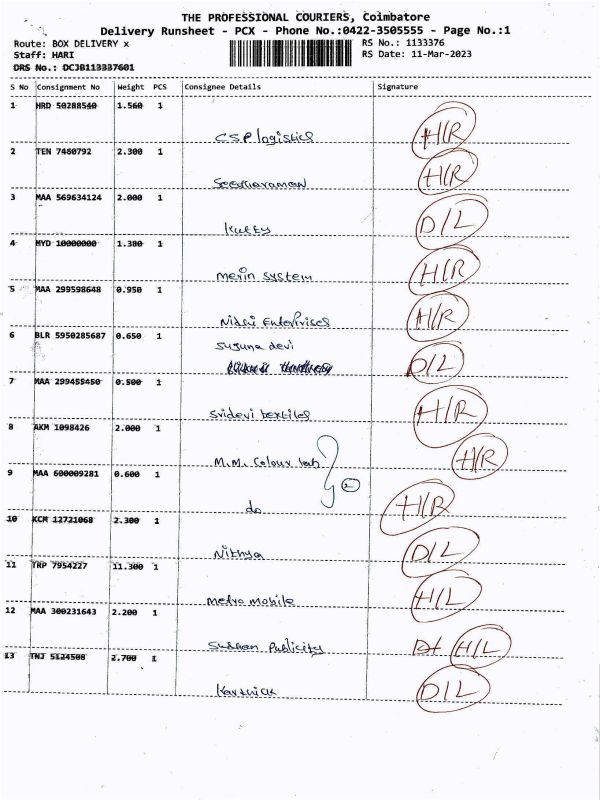 THE PROFESSIONAL COURIERS, Coimbatore
Delivery Runsheet - PCX - Phone No.:0422-3505555 - Page No.:1
Route: BOX DELIVERY x
RS No.: 1133376
Staff: HARI
RS Date: 11-Mar-2023
DRS No.: DCJB113337601
S No Consignment No Weight PCS Consignee Details Signature
1 HRD 50288540 1.560 1
CSP logistics H/R
2 TEN 7460792 2.300 1
Seetharaman H/R
3 MAA 569634124 2.000 1
Kutty D/L
4 HYD 10000000 1.380 1
merin system H/R
5 MAA 299598648 0.950 1
Nidhi Enterprises H/R
6 BLR 5950285687 0.650 1
Suguna devi
D/L
7 MAA 299455450 0.500 1
Sridevi textiles H/R
8 AKM 1098426 2.000 1
M.M. Colour lab H/R
9 MAA 600009281 0.600 1
2
do H/R
10 KCM 12721068 2.300 1
Nithya D/L
11 TRP 7954227 11.300 1
metro mobile H/L
12 MAA 300231643 2.200 1
Publicity H/L
13 TNJ 5124508 2.700 1
Karthick D/L